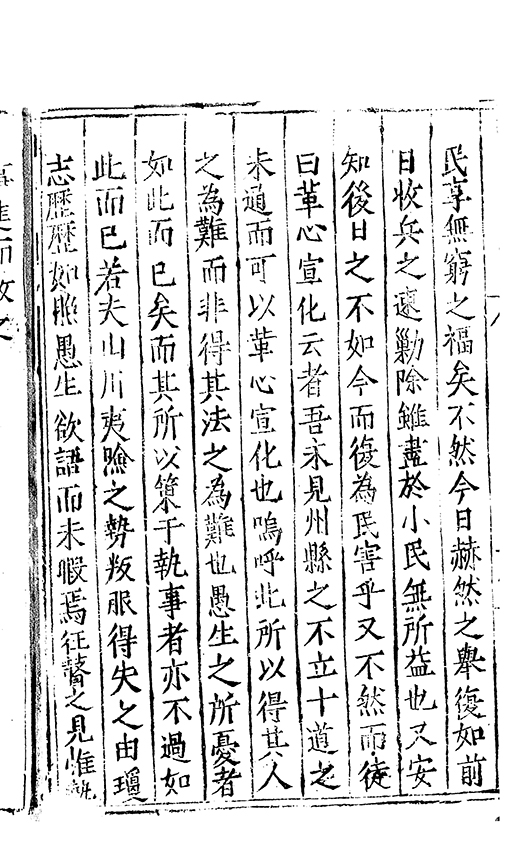 民享無窮之福矣不然今日赫然之舉復如前
日收兵之遽勦除雖盡於小民無所益也又安
知後日之不如今而復為民害乎又不然而徒
曰革心宣化云者吾未見州縣之不立十道之
未通而可以革心宣化也嗚呼此所以得其人
之為難而非得其法之為難也愚生之所憂者
如此而已矣而其所以策于執事者亦不過如
此而已若夫山川夷險之勢叛服得失之由瓊
志歷歷如照愚生欲語而未暇焉狂瞽之見惟執
事進而教之